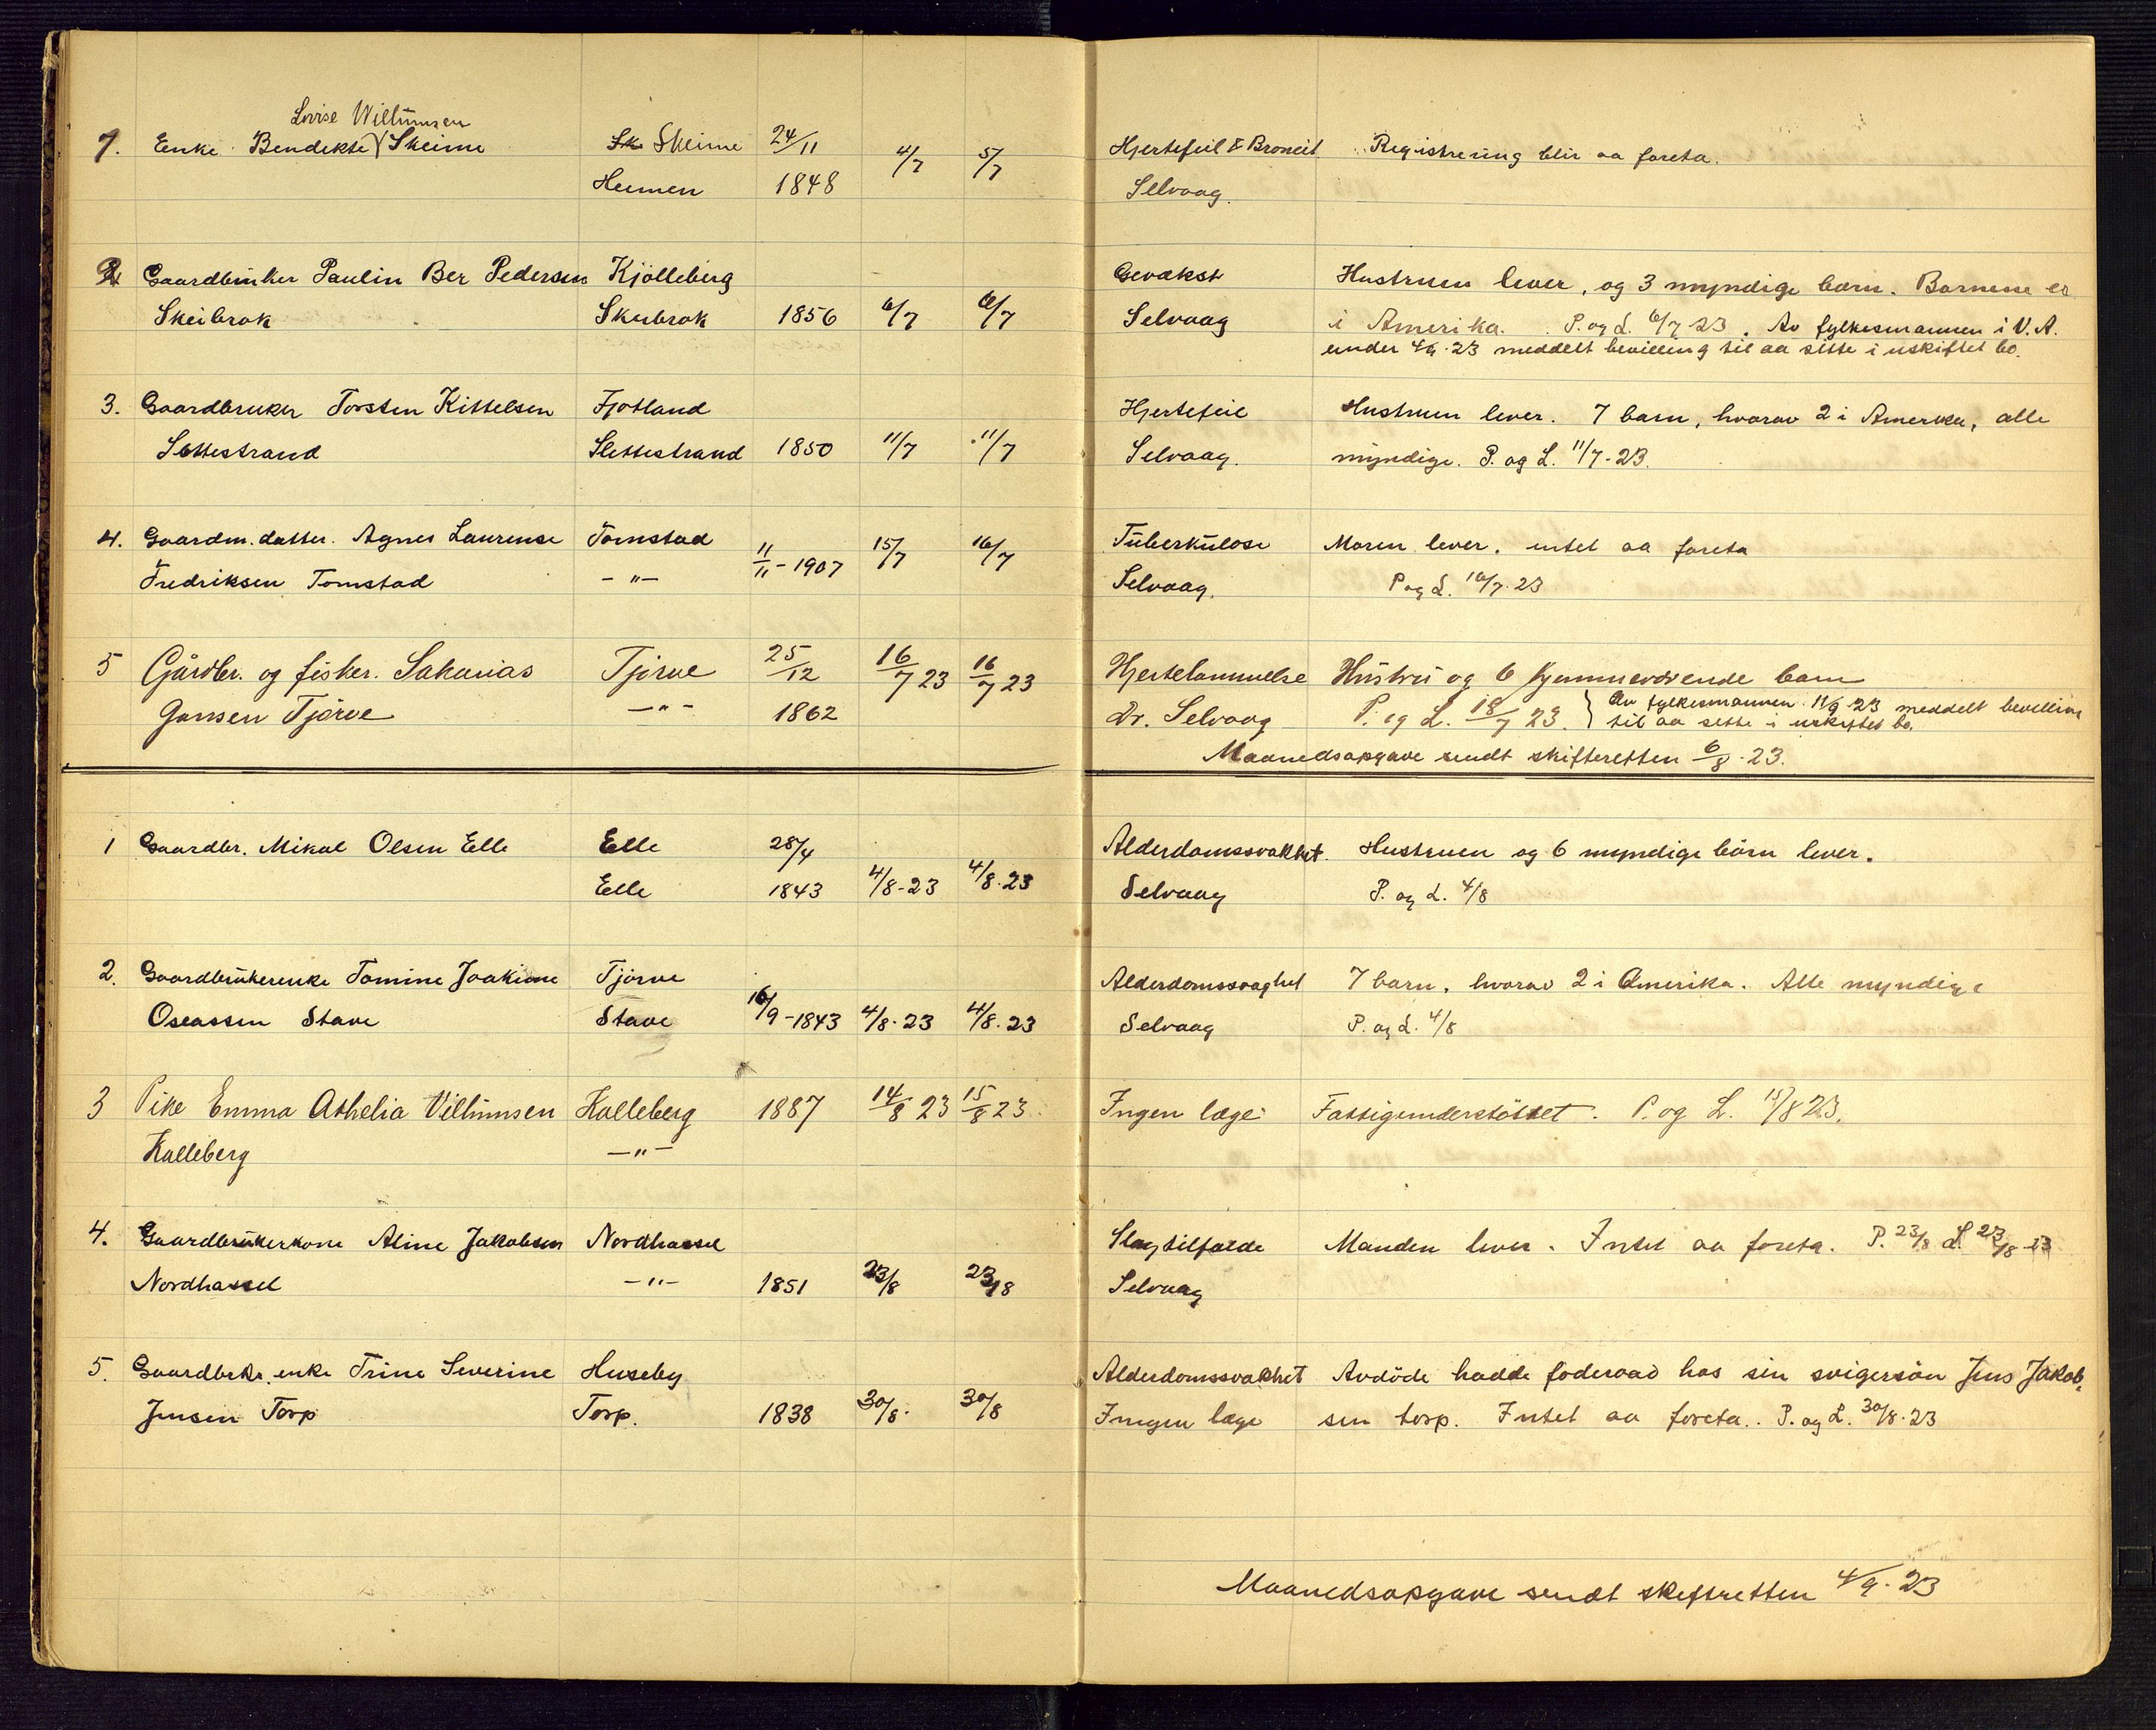 Lovise Willumsen
1. Enke Bendikte Skeime Sk Skeime 24/11 4/7 5/7 Hjertefeil & Broncit Registrering blir aa foreta.
Heimen 1848 Selvaag.
2 Gaardbruker Paulin Ber Pedersen Kjölleberg Gevækst Hustruen lever, og 3 myndige barn. Barnene er
Skeibrok Skeibrok 1856 6/7 6/7 Selvaag i Amerika. P. og L. 6/7 23. Av fylkesmannen i V.A.
under 4/9-23 meddelt bevilling til aa sitte i uskiftet bo.
3. Gaardbruker Torsten Kittelsen Fjotland Hjertefeil Hustruen lever. 7 barn, hvorav 2 i Amerika, alle
Slettestrand Slettestrand 1850 11/7 11/7 Selvaag. myndige. P. og L. 11/7-23.
4. Gaardm. datter. Agnes Laurense Tomstad 11/11-1907 15/7 16/7 Tuberkulose Moren lever. intet aa foreta
Fredriksen Tomstad -"- Selvaag. P og L. 16/7-23
5 Gårdbr. og fisker. Sakarias Tjörve 25/12 16/7 23 16/7 23 Hjertelammelse Hustru og 6 hjemmeværende barn
Jansen Tjörve -"- 1862 Dr. Selvaag P. og L. 18/7 23. Av fylkesmannen 11/9-23 meddelt bevilling
til aa sitte i uskiftet bo.
Maanedsopgave sendt skifteretten 6/8-23.
1 Gaardbr. Mikal Olsen Elle Elle 28/4 Alderdomssvakhet. Hustruen og 6 myndige börn lever.
Elle 1843 4/8-23 4/8-23 Selvaag P. og L. 4/8
2. Gaardbrukerenke Tomine Joakime Tjörve Alderdomssvaghet 7 barn. hvorav 2 i Amerika. Alle myndige
Oseassen Stave Stave 16/9-1843 4/8-23 4/8-23 Selvaag P. og L. 4/8
3 Pike Emma Athelia Villumsen Kalleberg 1887 14/8 23 15/8 23. Ingen læge Fattigunderstöttet. P. og L. 15/8 23.
Kalleberg -"-
4. Gaardbrukerkone Aline Jakobsen Nordhassel Slagtilfælde Manden lever. Intet aa foreta. P. 23/8 L. 23/8-23
Nordhassel -"- 1851 23/8 23/8 Selvaag
5. Gaardbrk. enke Trine Severine Huseby Alderdomssvakhet Avdöde hadde föderaad hos sin svigersön Jens Jakob-
Jensen Torp Torp. 1838 30/8. 30/8 Ingen læge sen torp. Intet aa foreta. P. og L. 30/8-23
Maanedsopgave sendt skiftretten 4/9-23